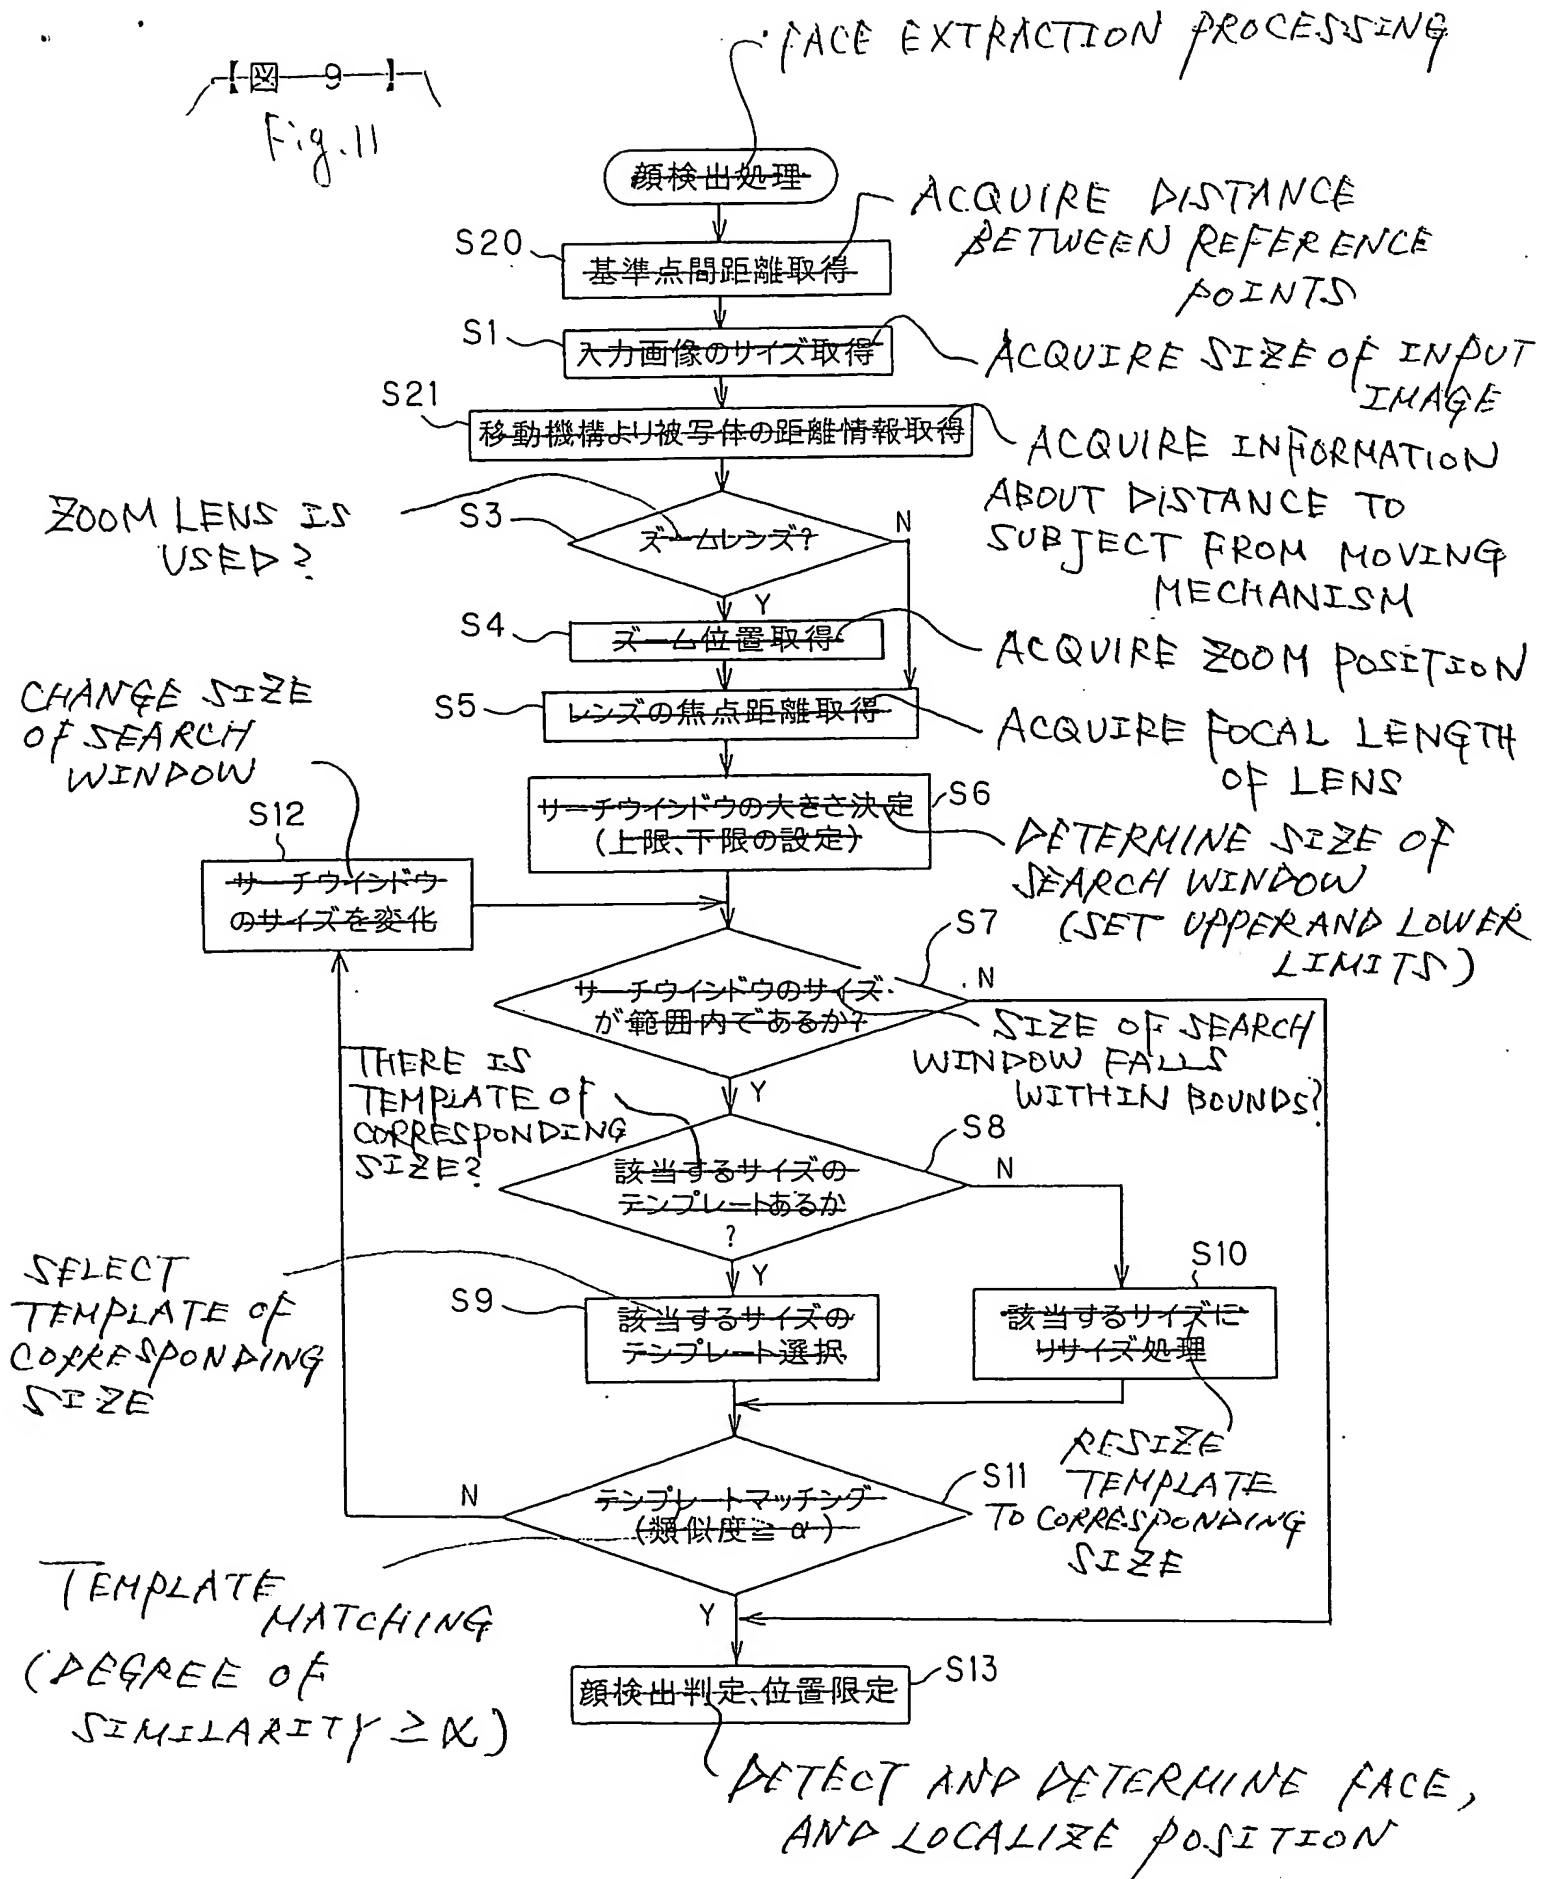 FACE EXTRACTION PROCESSING
【図 9】
Fig.11
顔検出処理
ACQUIRE DISTANCE
BETWEEN REFERENCE
POINTS
S20
基準点間距離取得
S1
入力画像のサイズ取得
ACQUIRE SIZE OF INPUT
IMAGE
S21
移動機構より被写体の距離情報取得
ACQUIRE INFORMATION
ABOUT DISTANCE TO
SUBJECT FROM MOVING
MECHANISM
ZOOM LENS IS
USED?
S3
ズームレンズ?
N
Y
S4
ズーム位置取得
ACQUIRE ZOOM POSITION
CHANGE SIZE
OF SEARCH
WINDOW
S5
レンズの焦点距離取得
ACQUIRE FOCAL LENGTH
OF LENS
S6
サーチウインドウの大きさ決定
(上限、下限の設定)
DETERMINE SIZE OF
SEARCH WINDOW
(SET UPPER AND LOWER
LIMITS)
S12
サーチウインドウ
のサイズを変化
S7
サーチウインドウのサイズ
が範囲内であるか?
N
SIZE OF SEARCH
WINDOW FALLS
WITHIN BOUNDS?
Y
THERE IS
TEMPLATE OF
CORRESPONDING
SIZE?
S8
該当するサイズの
テンプレートあるか
?
N
Y
SELECT
TEMPLATE OF
CORRESPONDING
SIZE
S9
該当するサイズの
テンプレート選択
S10
該当するサイズに
リサイズ処理
RESIZE
TEMPLATE
TO CORRESPONDING
SIZE
S11
テンプレートマッチング
(類似度≧α)
N
TEMPLATE
MATCHING
(DEGREE OF
SIMILARITY ≥ α)
Y
S13
顔検出判定、位置限定
DETECT AND DETERMINE FACE,
AND LOCALIZE POSITION